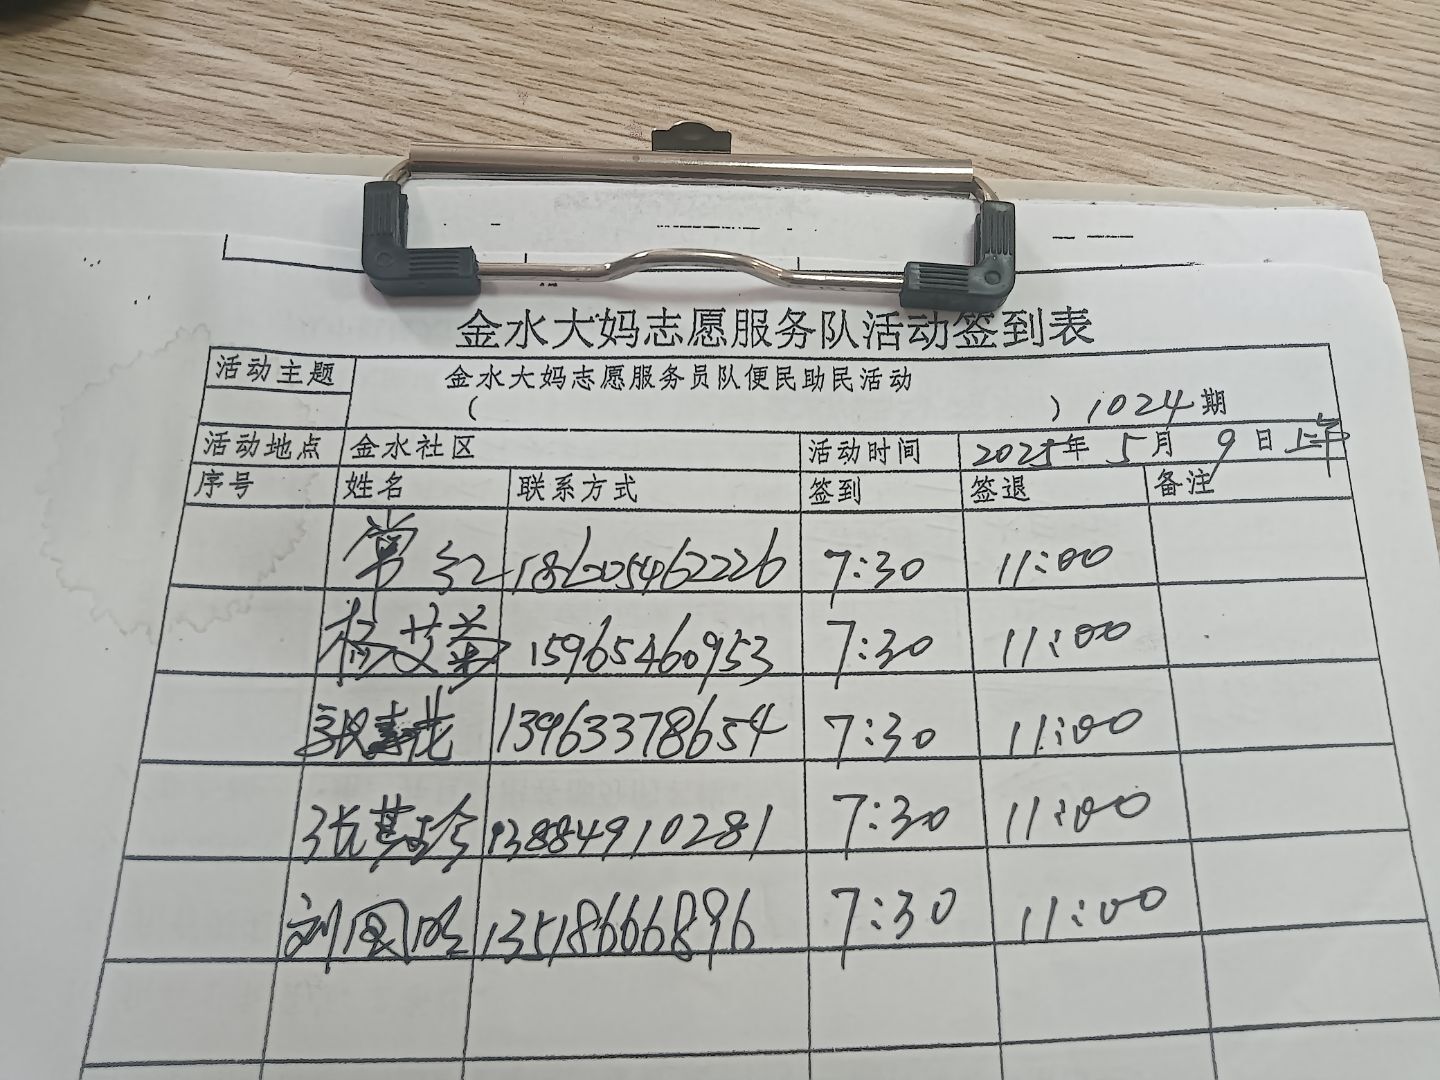 金水大妈志愿服务队活动签到表
活动主题 金水大妈志愿服务员队便民助民活动
( ) 1024期
活动地点 金水社区 活动时间 2025年 5月 9日上午
序号 姓名 联系方式 签到 签退 备注
常红 18605462226 7:30 11:00
杨艾菊 15965460953 7:30 11:00
13963378654 7:30 11:00
张 13884910281 7:30 11:00
刘国明 13518666896 7:30 11:00